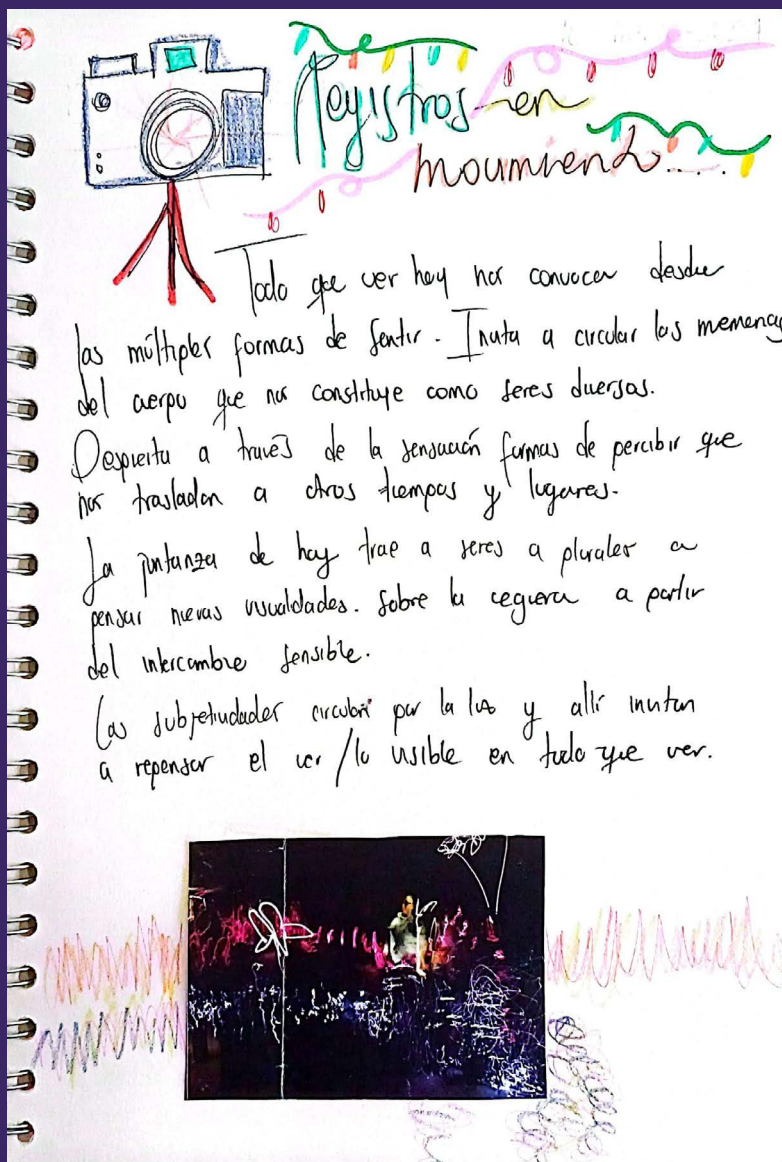 Registros en
movimiento....
Todo que ver hoy nos convoca desde
las múltiples formas de sentir. Invita a circular las memorias
del cuerpo que nos constituye como seres diversos.
Despierta a través de la sensación formas de percibir que
nos trasladan a otros tiempos y lugares.
La juntanza de hoy trae a seres a plurales a
pensar nuevas visualidades. Sobre la ceguera a partir
del intercambio sensible.
Las subjetividades circulan por la luz y allí invitan
a repensar el ver/lo visible en todo que ver.